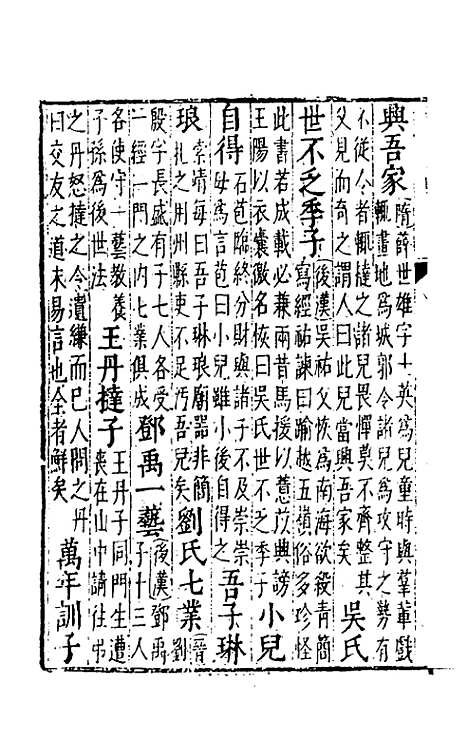 興吾家隋薛世雄字十英爲兒童時與羣輩戲
輒畫地爲城郭令諸兒爲攻守之勢有
不從令者輒撻之諸兒畏憚莫不齊整其
父見而奇之謂人曰此兒當興吾家矣
吳氏
世不乏季子後漢吳祐父恢爲南海欲殺青簡
寫經祐諫曰踰越五嶺俗多珍怪
此書若成載必兼兩昔馬援以薏苡興謗
王陽以衣囊徼名核曰吳氏世不乏季子
小兒
自得石苞臨終分財與諸子不及崇崇
母爲言苞曰小兒雖小後自得之
吾子琳
琅索靖每曰吾子琳琅廟器非簡
札之用州縣吏不足汚吾兒矣
劉氏七業晉劉
殷字長盛有子七人各受
一經一門之内七業俱成
鄧禹一藝後漢鄧禹
子十三人
各使守一藝教養
子孫爲後世法
王丹撻子王丹子同門生遭
喪在山中請往弔
之丹怒撻之令遺縑而已人問之丹
曰交友之道未易言也全者鮮矣
萬年訓子